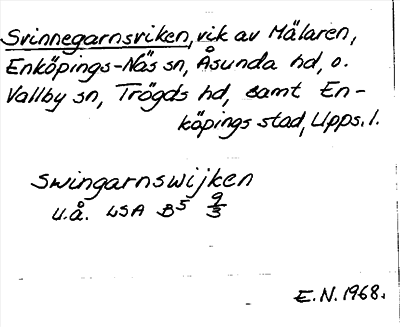 Svinnegarnsviken, vik av Mälaren,
Enköpings-Näs sn, Åsunda hd, o.
Vallby sn, Trögds hd, samt En-
köpings stad, Upps. l.
Swingarnswijken
u.å. LSA B5 9/3
E.N. 1968.